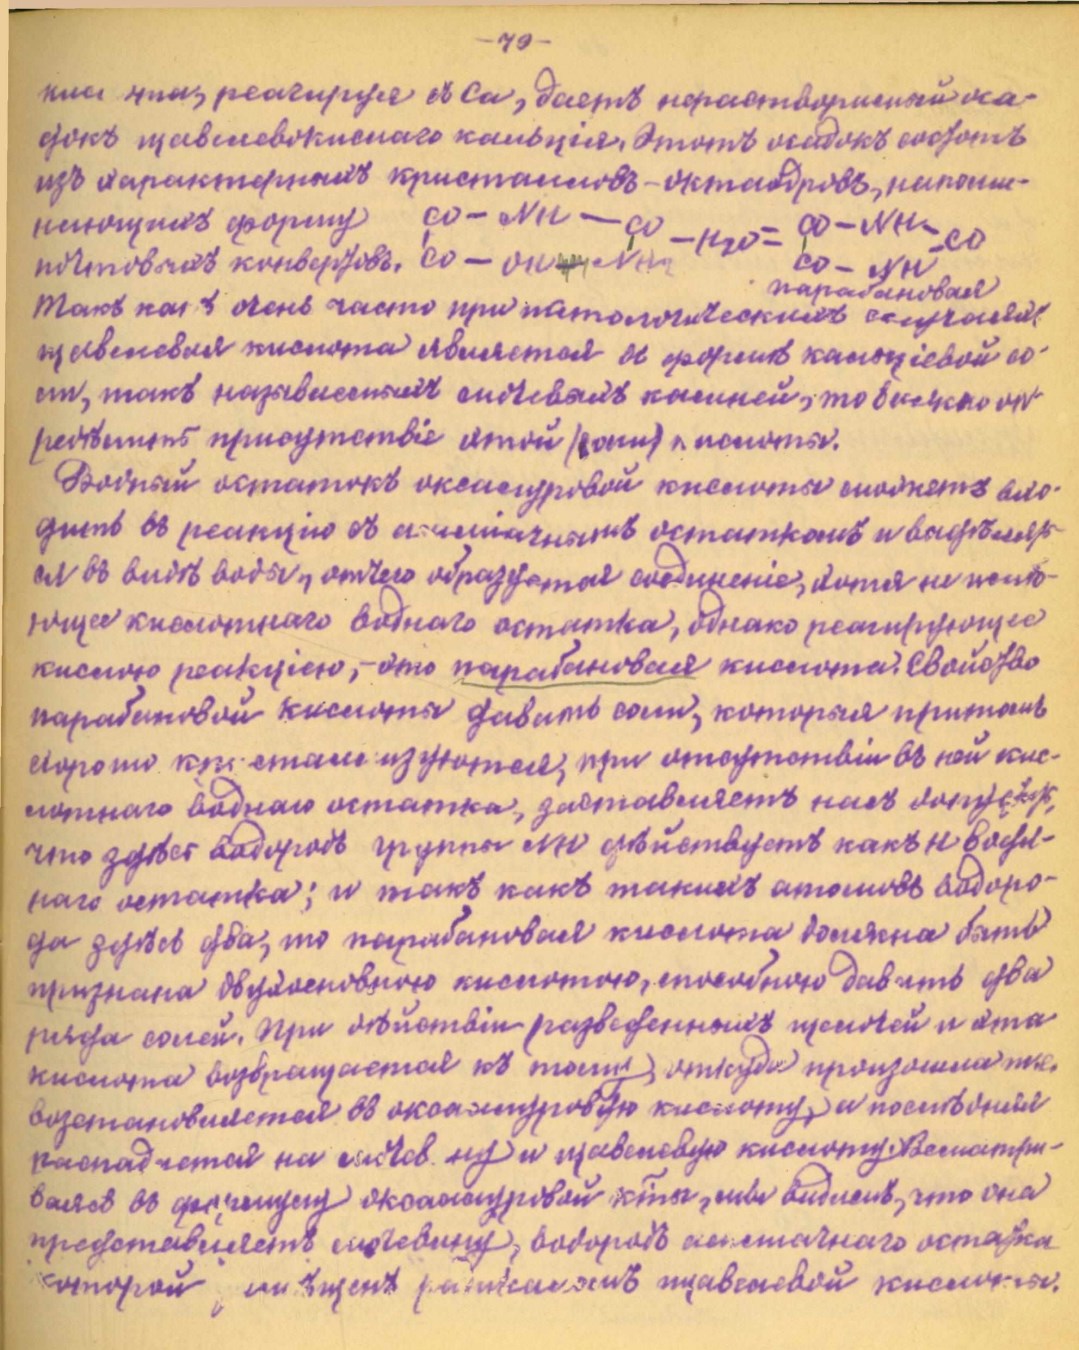 -79-
реагируя съ Са, даетъ нерастворимый оса-
докъ щавелевокислаго кальція. Этотъ осадокъ состоитъ
изъ характерныхъ кристалловъ-октаэдровъ, напоми-
нающихъ форму CO - NH - CO - H2O = CO - NH - CO
почтовыхъ конвертовъ. CO - OH NH2 CO - NH
парабановая
Такъ какъ очень часто при патологическихъ случаяхъ
щавелевая кислота является въ формѣ кальціевой со-
ли, такъ называемыхъ мочевыхъ камней, то можно оп-
редѣлить присутствіе этой (соли) кислоты.
Водный остатокъ оксалуровой кислоты можетъ вхо-
дить въ реакцію съ амміачнымъ остаткомъ и выдѣлять-
ся въ видѣ воды, отчего образуется соединеніе, хотя не имѣ-
ющее кислотнаго воднаго остатка, однако реагирующее
кислою реакціею, - это парабановая кислота. Свойство
парабановой кислоты давать соли, которыя притомъ
хорошо кристаллизуются, при отсутствіи въ ней кис-
лотнаго воднаго остатка, заставляетъ насъ допустить,
что здѣсь водородъ группы NH дѣйствуетъ какъ Н вод-
наго остатка; и такъ какъ такихъ атомовъ водоро-
да здѣсь два, то парабановая кислота должна быть
признана двухосновною кислотою, способною давать два
ряда солей. При дѣйствіи разведенныхъ щелочей и эта
кислота возвращается къ тому, откуда произошла т.е.
возстановляется въ оксалуровую кислоту, а послѣдняя
распадается на мочевину и щавелевую кислоту. Всматри-
ваясь въ формулу оксалуровой к-ты, мы видимъ, что она
представляетъ мочевину, водородъ амміачнаго остатка
которой замѣщенъ радикаломъ щавелевой кислоты.